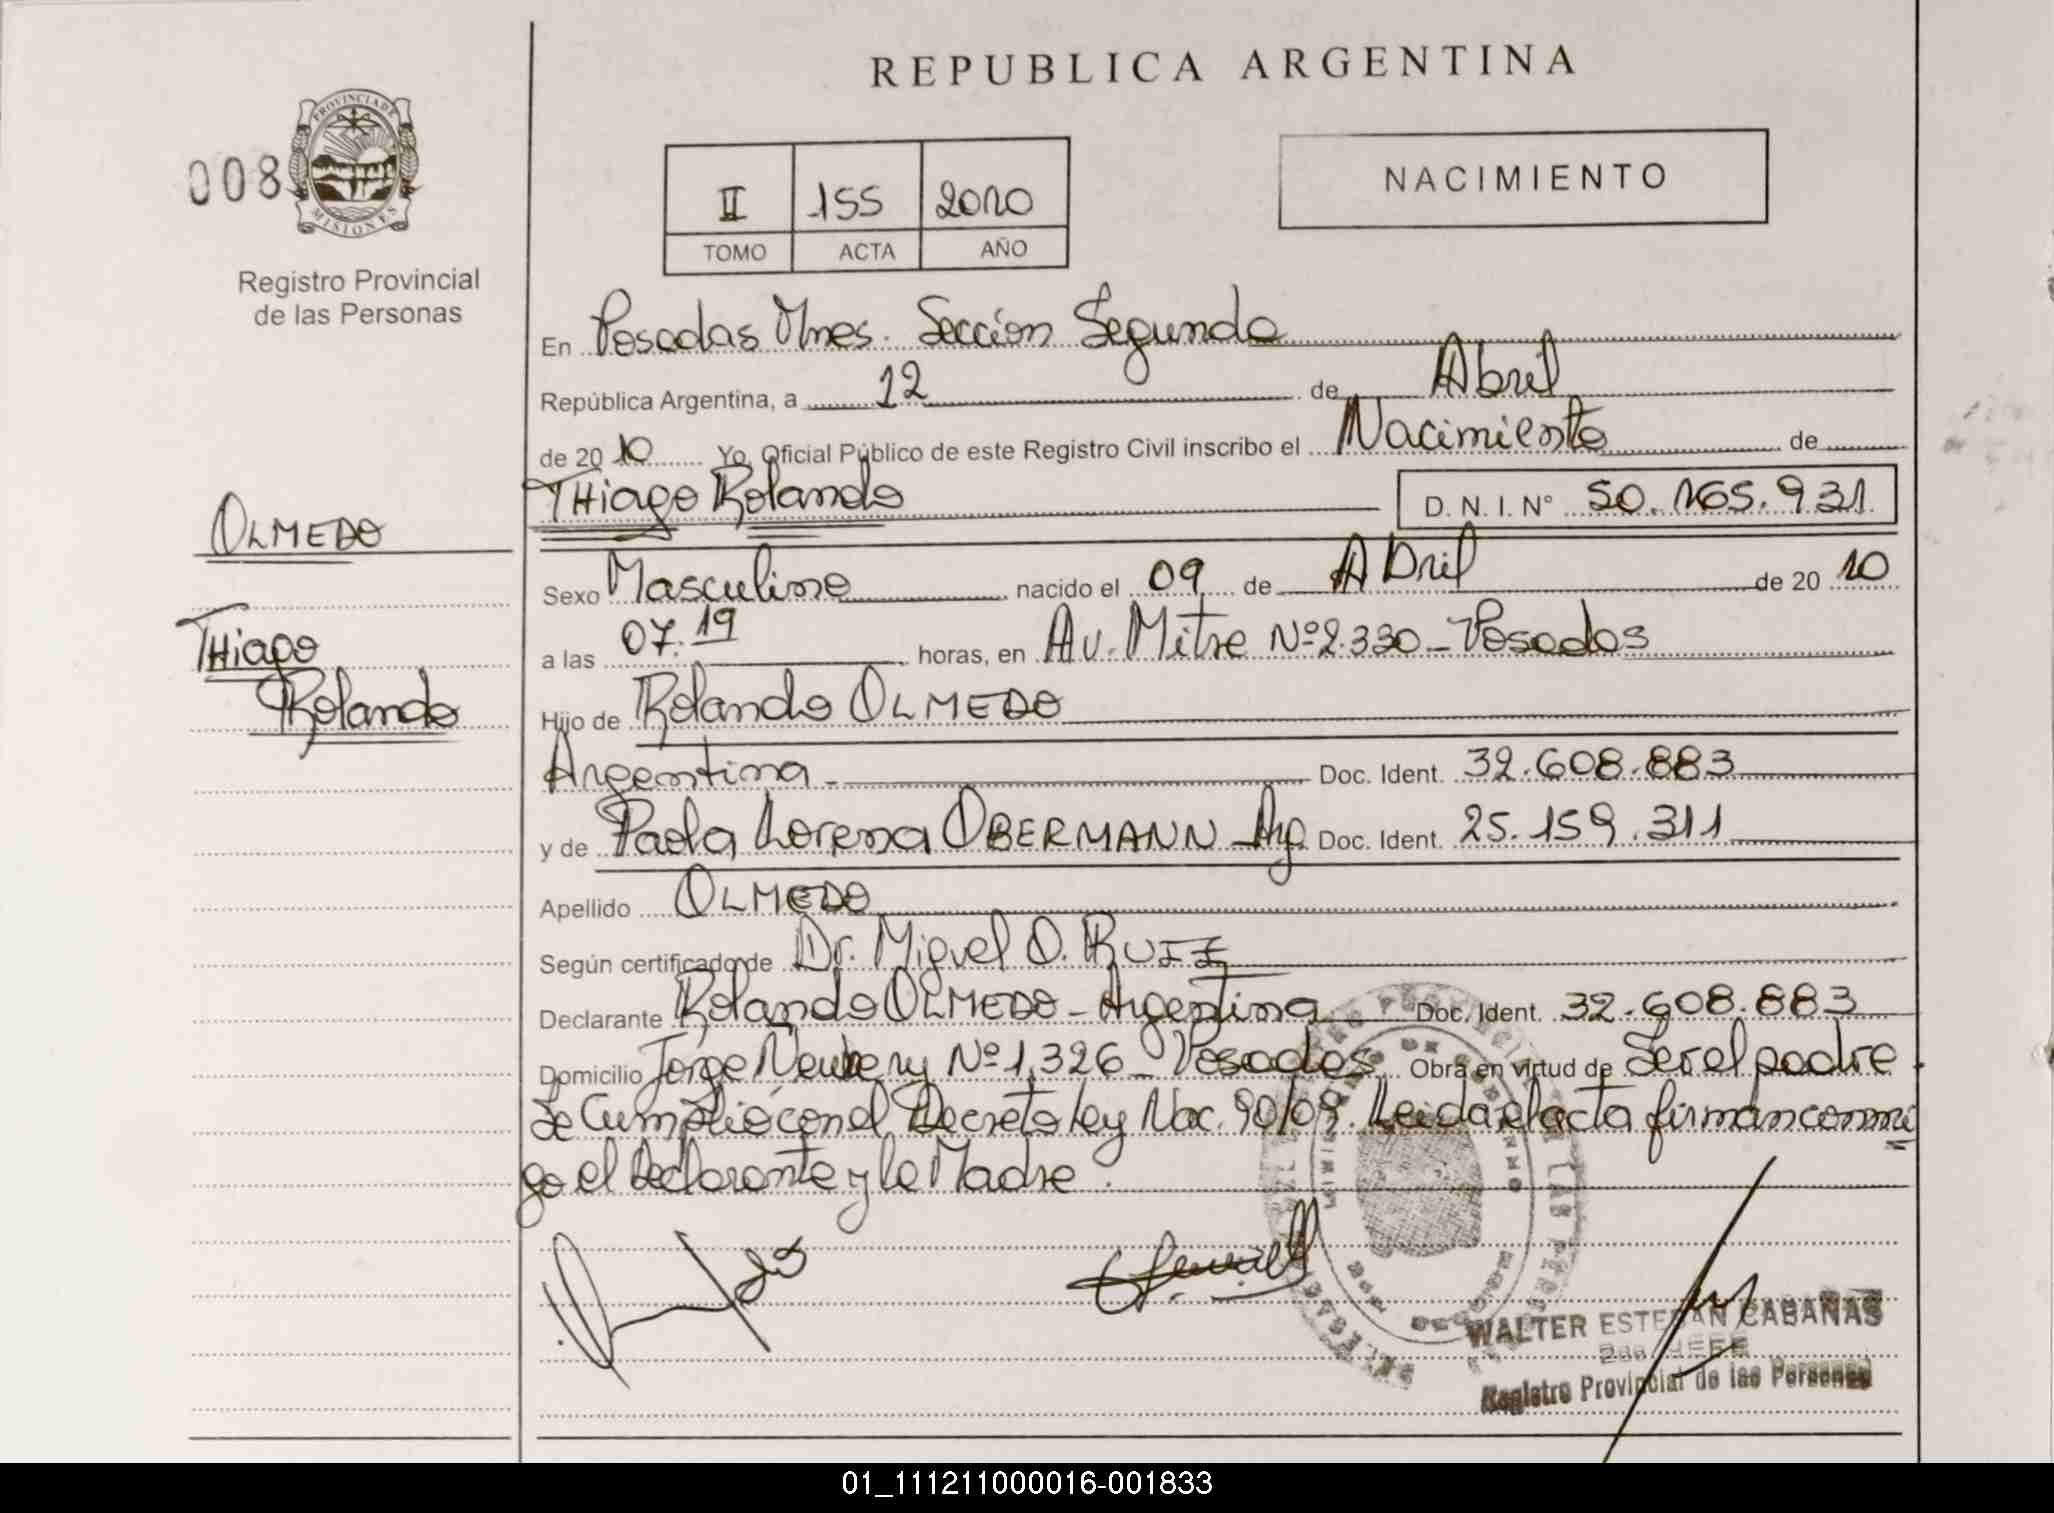 REPUBLICA ARGENTINA
008
PROVINCIA DE
MISIONES
Registro Provincial
de las Personas
II 155 2010
TOMO ACTA AÑO
NACIMIENTO
En Posadas Mnes. Sección Segunda
República Argentina, a 12 de Abril
de 2010 Yo, Oficial Público de este Registro Civil inscribo el Nacimiento de
THiago Rolando D. N. I. Nº 50.165.931
OLMEDO
THiago
Rolando
Sexo Masculino nacido el 09 de Abril de 2010
a las 07.19 horas, en Av. Mitre Nº 2.330 - Posadas
Hijo de Rolando OLMEDO
Argentina - Doc. Ident. 32.608.883
y de Paola Lorena OBERMANN Arg. Doc. Ident. 25.159.311
Apellido OLMEDO
Según certificado de Dr. Miguel O. RUIZ
Declarante Rolando OLMEDO - Argentina Doc. Ident. 32.608.883
Domicilio Jorge Newbery Nº 1.326 - Posadas Obra en virtud de Ser el padre.
Se Cumplió con el Decreto Ley Nac. 90/09. Leida el acta firman conmi
go el Declarante y la Madre.
WALTER ESTEBAN CABAÑAS
JEFE
Registro Provincial de las Personas
01_111211000016-001833